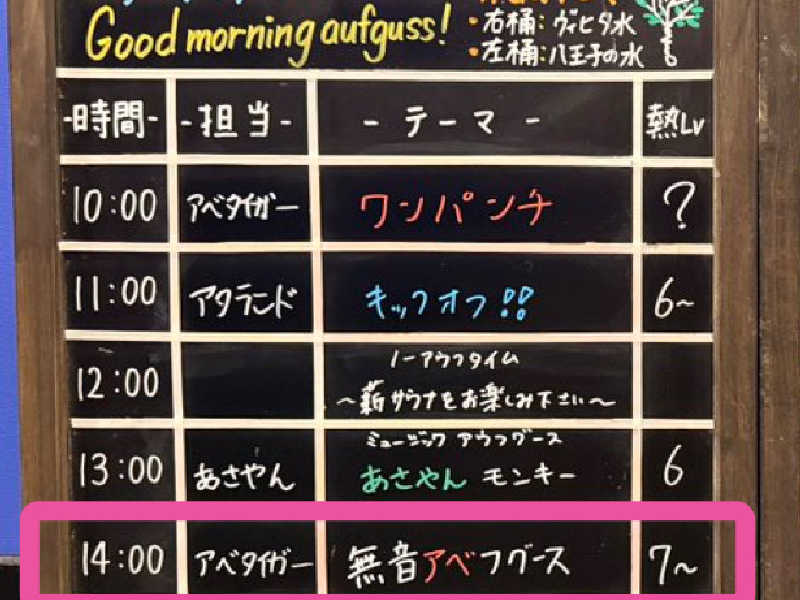 Good morning aufguss!
・右桶：ヴィヒタ水
・左桶：八王子の水
-時間- -担当- -テーマ- 熱Lv
10:00 アベタイガー ワンパンチ ?
11:00 アタランド キックオフ!! 6~
12:00 ノーアウフタイム
~薪サウナをお楽しみ下さい~
ミュージックアウフグース
13:00 あさやん あさやん モンキー 6
14:00 アベタイガー 無音アベフグース 7~